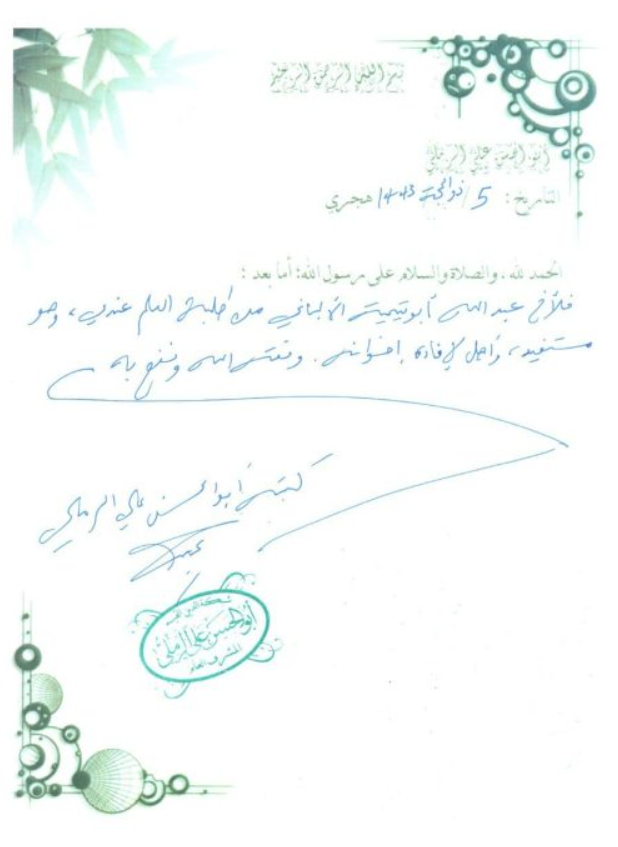 بسم الله الرحمن الرحيم
أبو الحسن علي الرملي
التاريخ: 5 / ذو الحجة / 1443 هجري
الحمد لله، والصلاة والسلام على رسول الله؛ أما بعد:
فلأخ عبد الله أبو تيمية الألباني من طلبة العلم عندي، وهو
مستفيد، وأهل لإفادة إخوانه. وفقه الله ونفع به
كتبه أبو الحسن علي الرملي
شبكة الدين القيم
أبو الحسن علي الرملي
المشرف العام